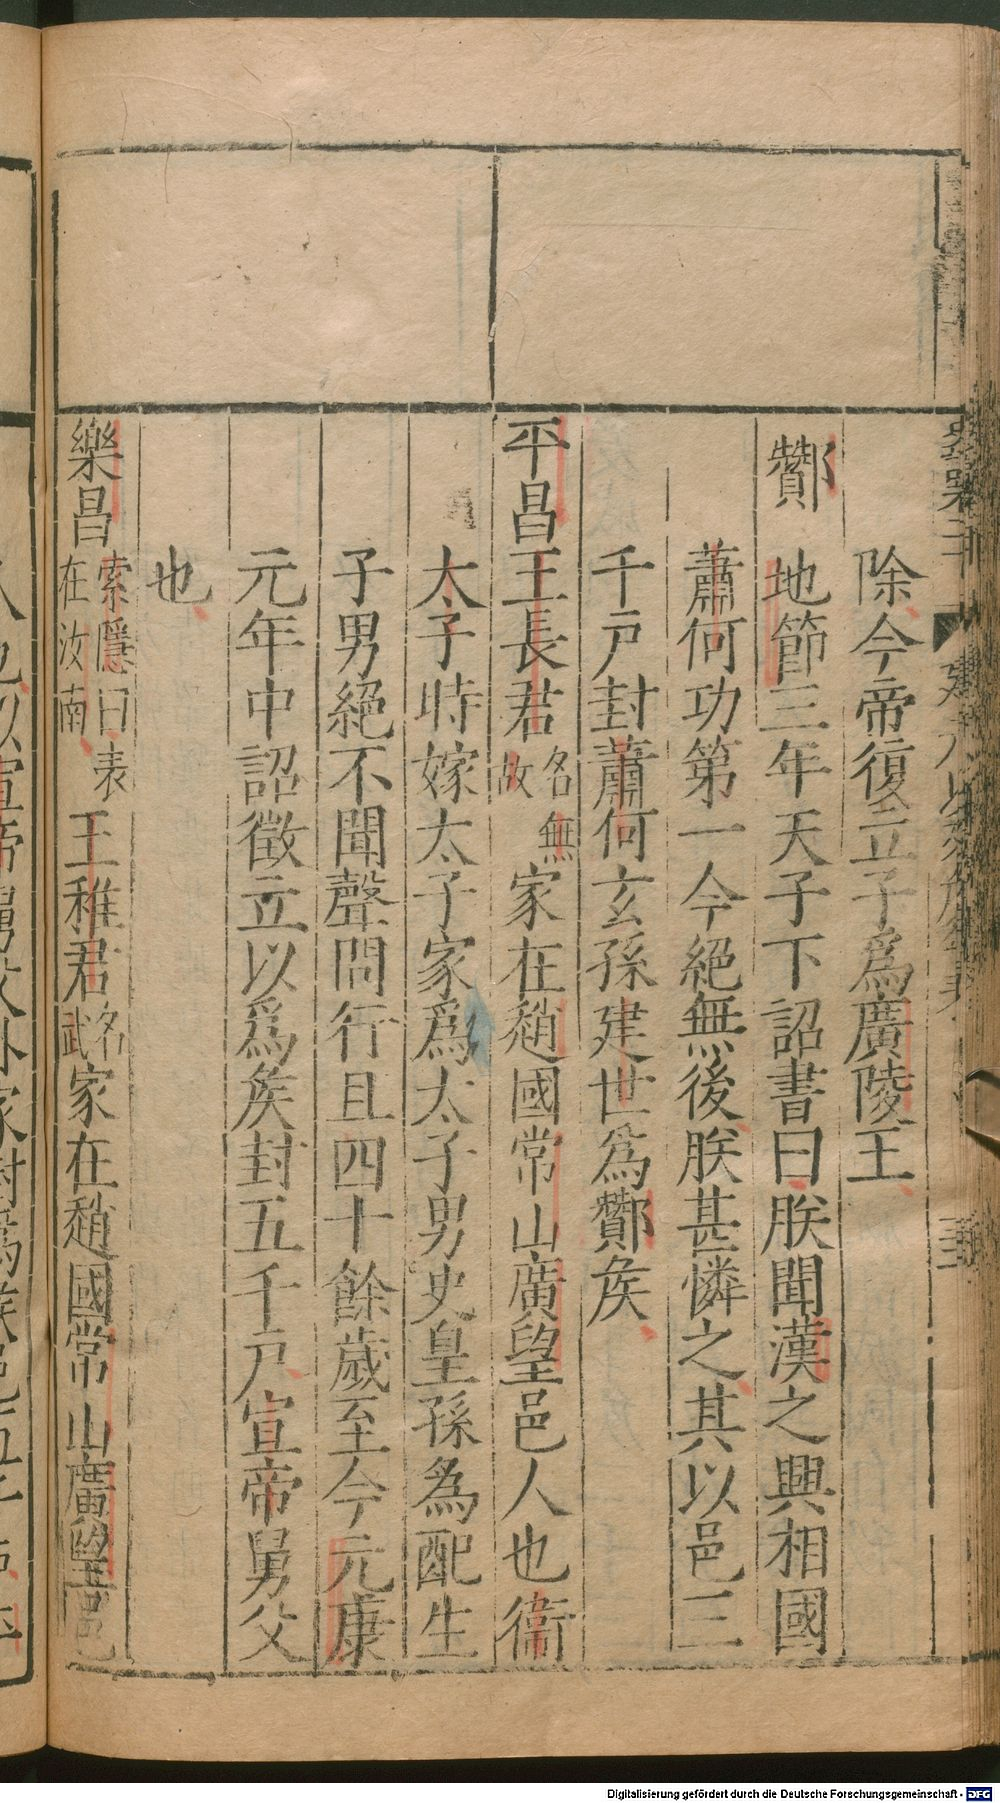 除今帝復立子為廣陵王
酇 地節三年天子下詔書曰朕聞漢之興相國
蕭何功第一今絕無後朕甚憐之其以邑三
千戶封蕭何玄孫建世為酇矦
平昌王長君名無故家在趙國常山廣望邑人也衞
太子時嫁太子家為太子男史皇孫為配生
子男絕不聞聲問行且四十餘歲至今元康
元年中詔徵立以為矦封五千戶宣帝舅父
也
樂昌索隱曰表在汝南王稚君名武家在趙國常山廣望邑
Digitalisierung gefördert durch die Deutsche Forschungsgemeinschaft - DFG